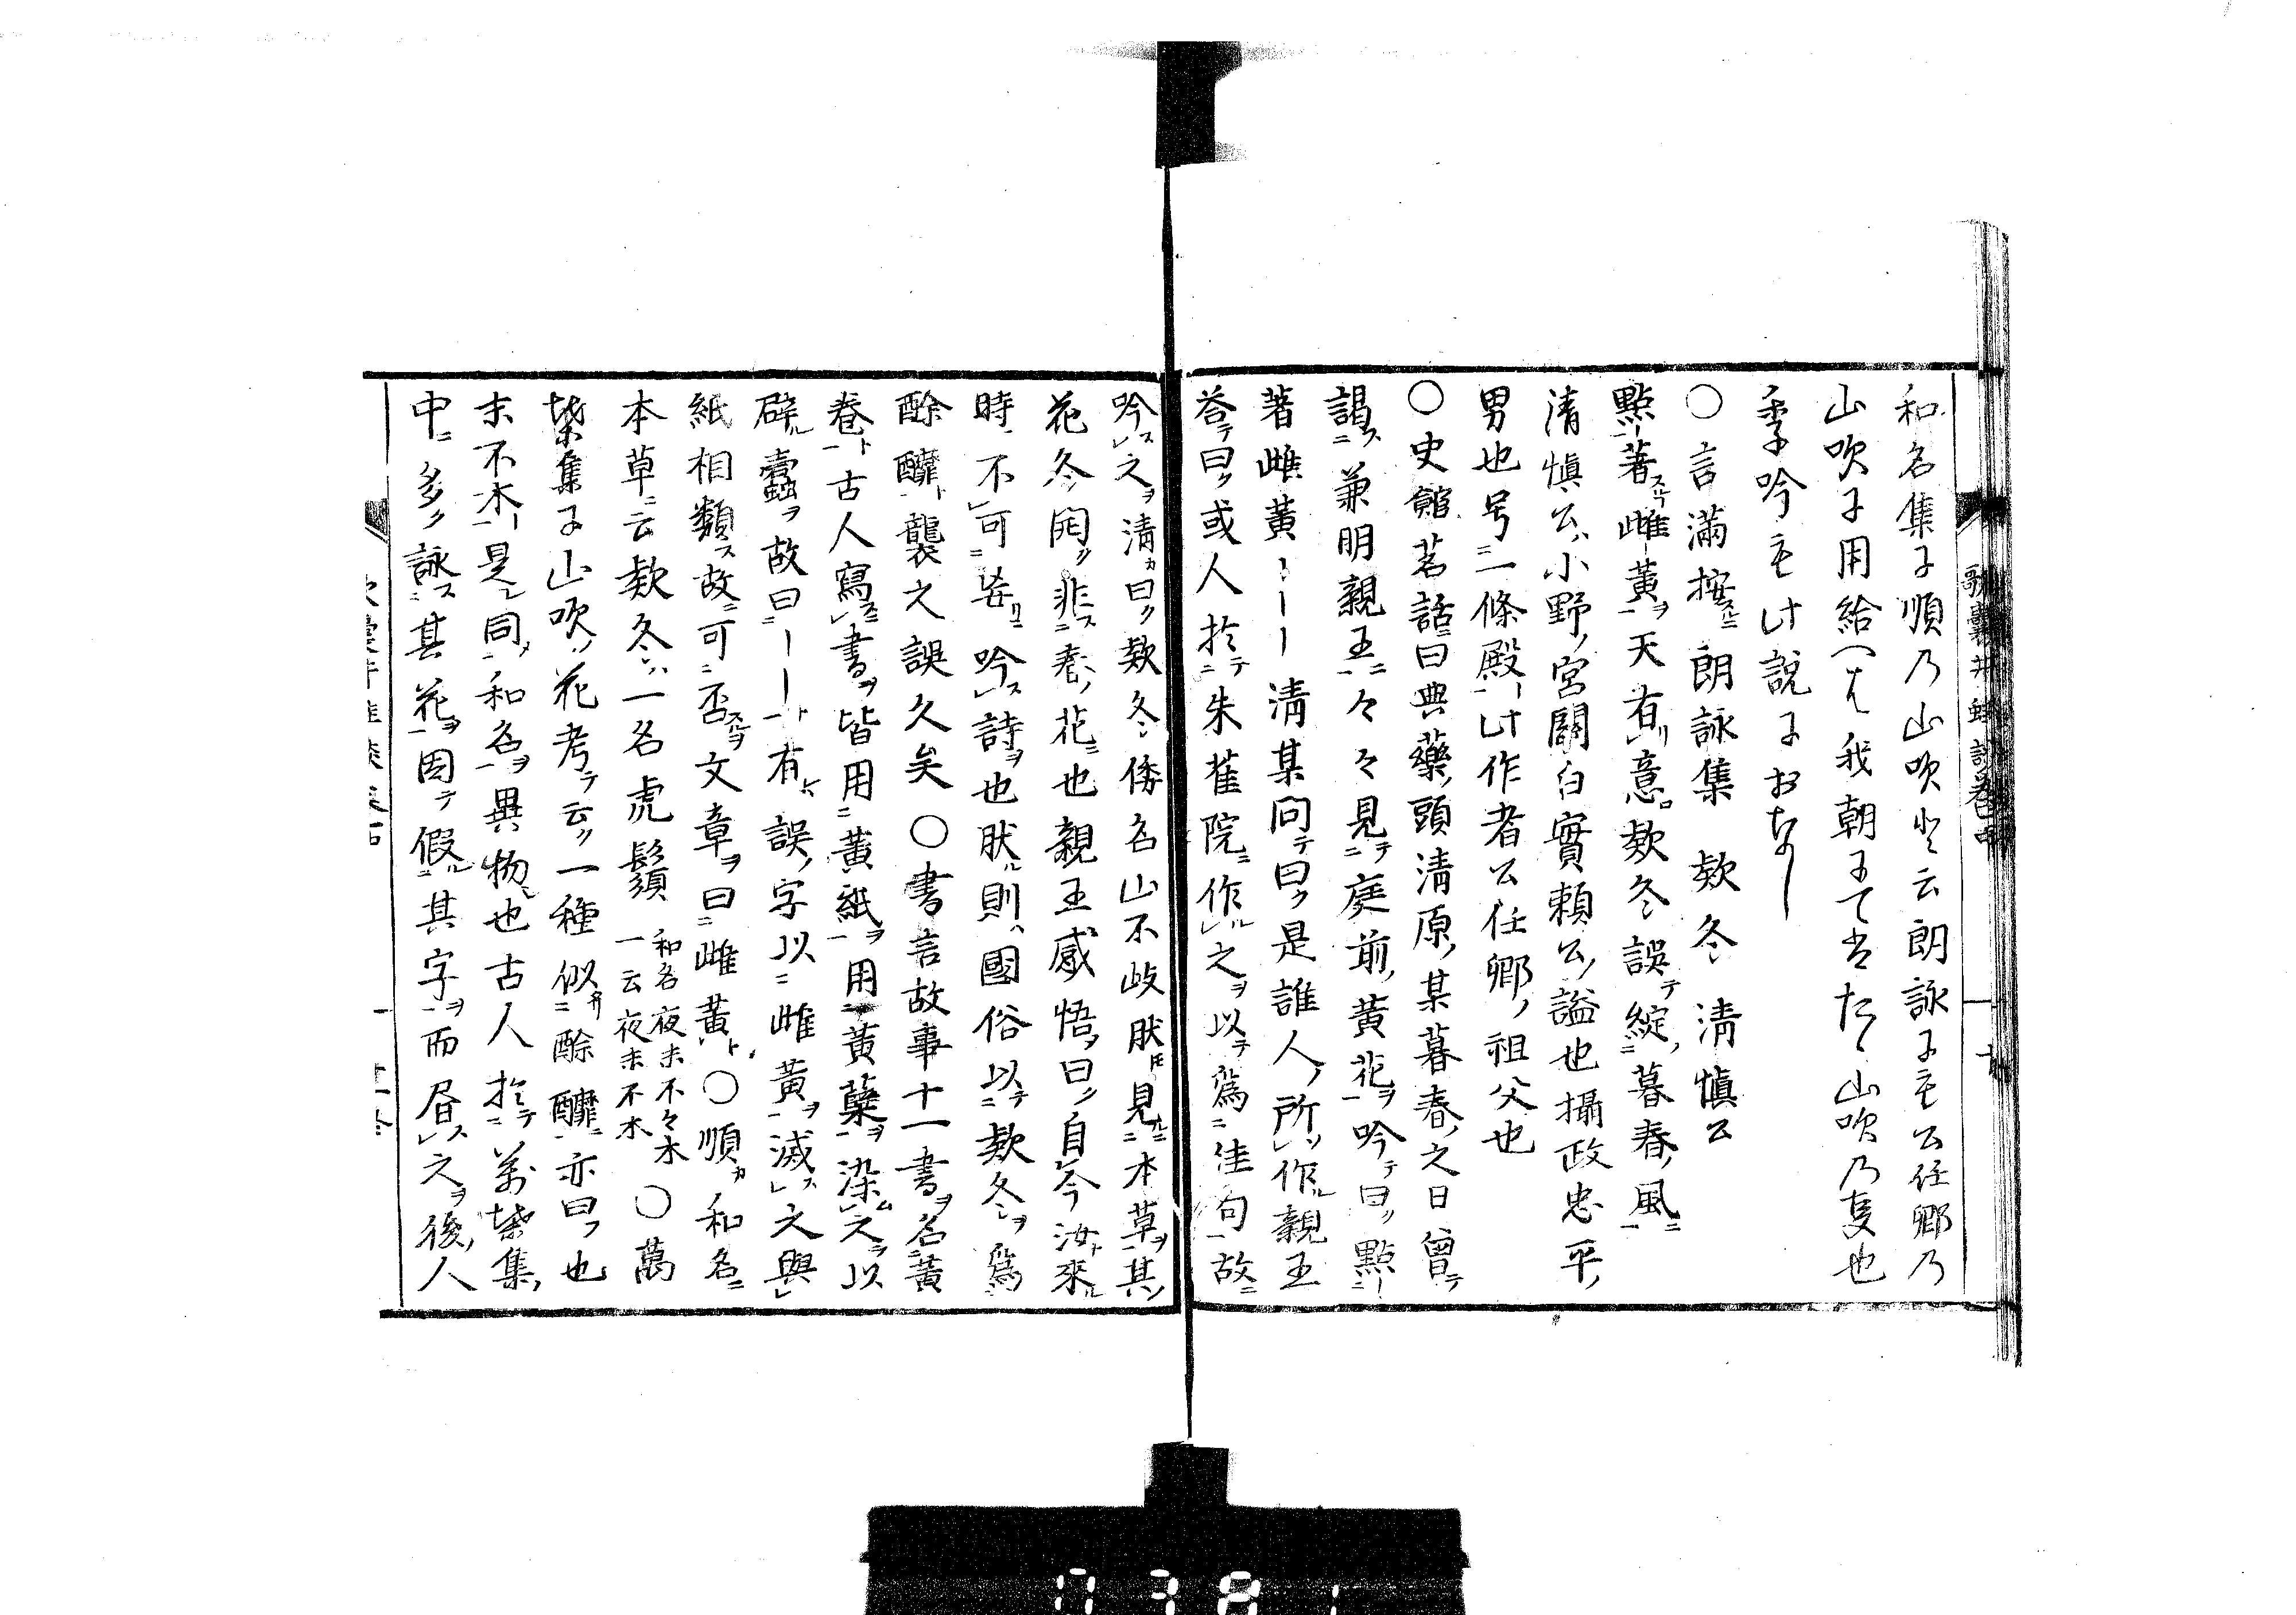 和名集に順の山吹と云朗詠にも公任卿の
山吹に用給へは我朝にてはたゝ山吹の叓也
季吟も此説におなし
〇言満按スルニ朗詠集　欵冬　清慎公
點著スルコト雌黄ヲ天有意欵冬誤テ綻暮春ノ風ニ
清慎公ハ小野ノ宮關白實頼公ノ謚也攝政忠平ノ
男也号ニ一條殿ト此作者公任卿ノ祖父也
〇史館茗話ニ曰典藥ノ頭清原ノ某暮春ノ之日曾テ
謁ス兼明親王ニ々々見テ庭前ノ黄花ヲ吟テ曰ク點ー
著雌黄ーーー清某問テ曰ク是誰人ノ所作ル親王
荅テ曰ク或人於テ朱雀院ニ作ル之ヲ以テ爲佳句ト故ニ
吟ス之ヲ清カ曰ク欵冬ハ倭名山不岐肰トモ見ルニ本草ヲ其ノ
花冬開ク非ス春ノ花ニ也親王感悟ノ曰ク自今汝ト來ル
時ハ不可妄リニ吟ス詩ヲ也肰ル則ハ國俗以テ欵冬ヲ爲
酴醿ト襲之誤久矣　〇書言故事十一書ヲ名黄
巻ト古人寫スニ書ヲ皆用黄紙ヲ用黄蘗ヲ染ム之ヲ以
辟ル蠧ヲ故曰ーーート有レハ誤ノ字以雌黄ヲ滅ス之與
紙相類ス故ニ可否スルヲ文章ヲ曰雌黄ト〇順カ和名ニ
本草ニ云欵冬ハ一名虎鬚　和名夜末不々木　一云夜末不木　〇萬
葉集に山吹ノ花考テ云ク一種似酴醿ニ亦曰フ也
末不木ト是レ同和名ヲ異物也古人於テ萬葉集ノ
中ニ多ク詠ス其花ヲ因テ假ル其字ヲ而昼ス之ヲ後人
歌囊井蛙談巻中